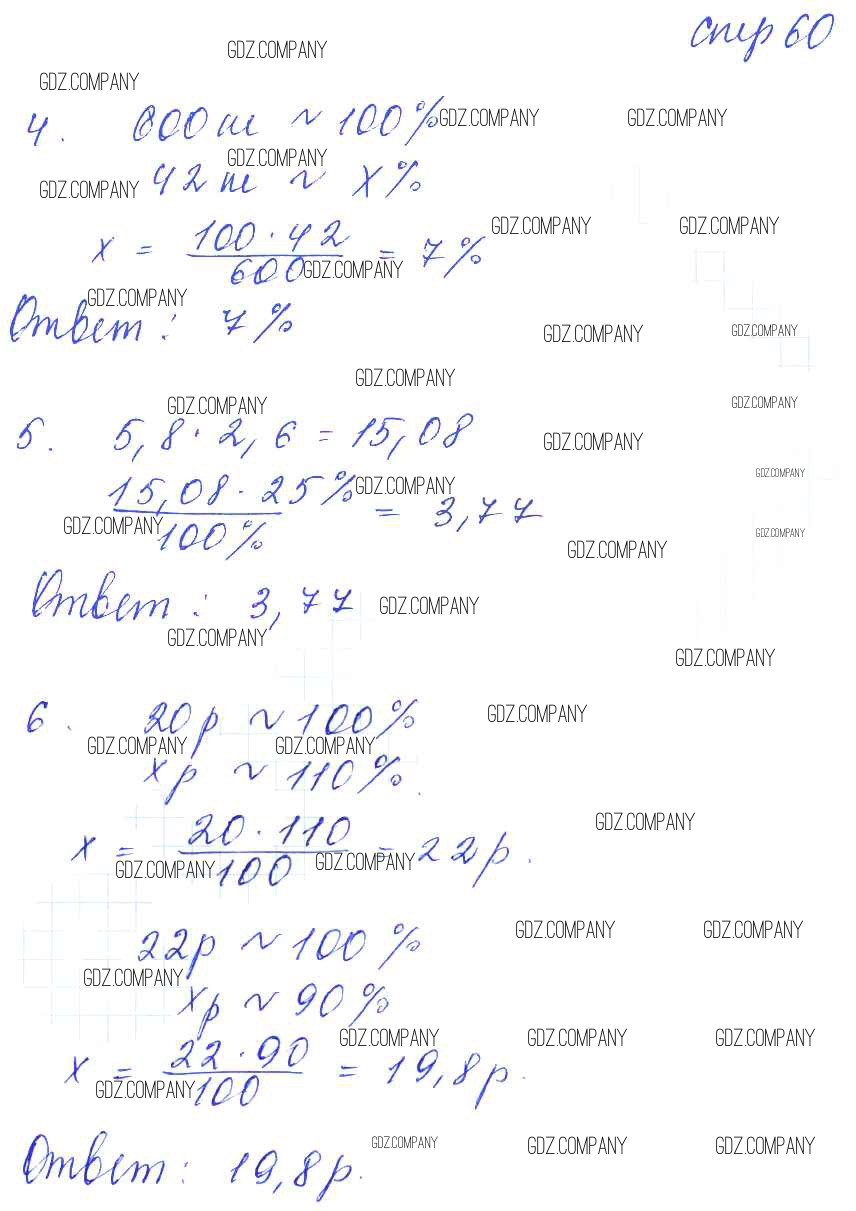 стр 60
GDZ.COMPANY
GDZ.COMPANY
4. 600 ш ~ 100 % GDZ.COMPANY GDZ.COMPANY
GDZ.COMPANY
GDZ.COMPANY 42 ш ~ x %
GDZ.COMPANY GDZ.COMPANY
x = 100 · 42 / 600 = 7 %
GDZ.COMPANY
GDZ.COMPANY
Ответ : 7 %
GDZ.COMPANY GDZ.COMPANY
GDZ.COMPANY
GDZ.COMPANY GDZ.COMPANY
5. 5,8 · 2,6 = 15,08
GDZ.COMPANY
GDZ.COMPANY
15,08 · 25 % / 100 % = 3,77
GDZ.COMPANY
GDZ.COMPANY GDZ.COMPANY
GDZ.COMPANY
Ответ : 3,77 GDZ.COMPANY
GDZ.COMPANY
GDZ.COMPANY
6. 20 р ~ 100 % GDZ.COMPANY
GDZ.COMPANY GDZ.COMPANY
x р ~ 110 %.
GDZ.COMPANY
x = 20 · 110 / 100 = 22 р.
GDZ.COMPANY GDZ.COMPANY
GDZ.COMPANY GDZ.COMPANY
22 р ~ 100 %
GDZ.COMPANY
x р ~ 90 %
GDZ.COMPANY GDZ.COMPANY GDZ.COMPANY
x = 22 · 90 / 100 = 19,8 р.
GDZ.COMPANY
GDZ.COMPANY GDZ.COMPANY GDZ.COMPANY
Ответ : 19,8 р.